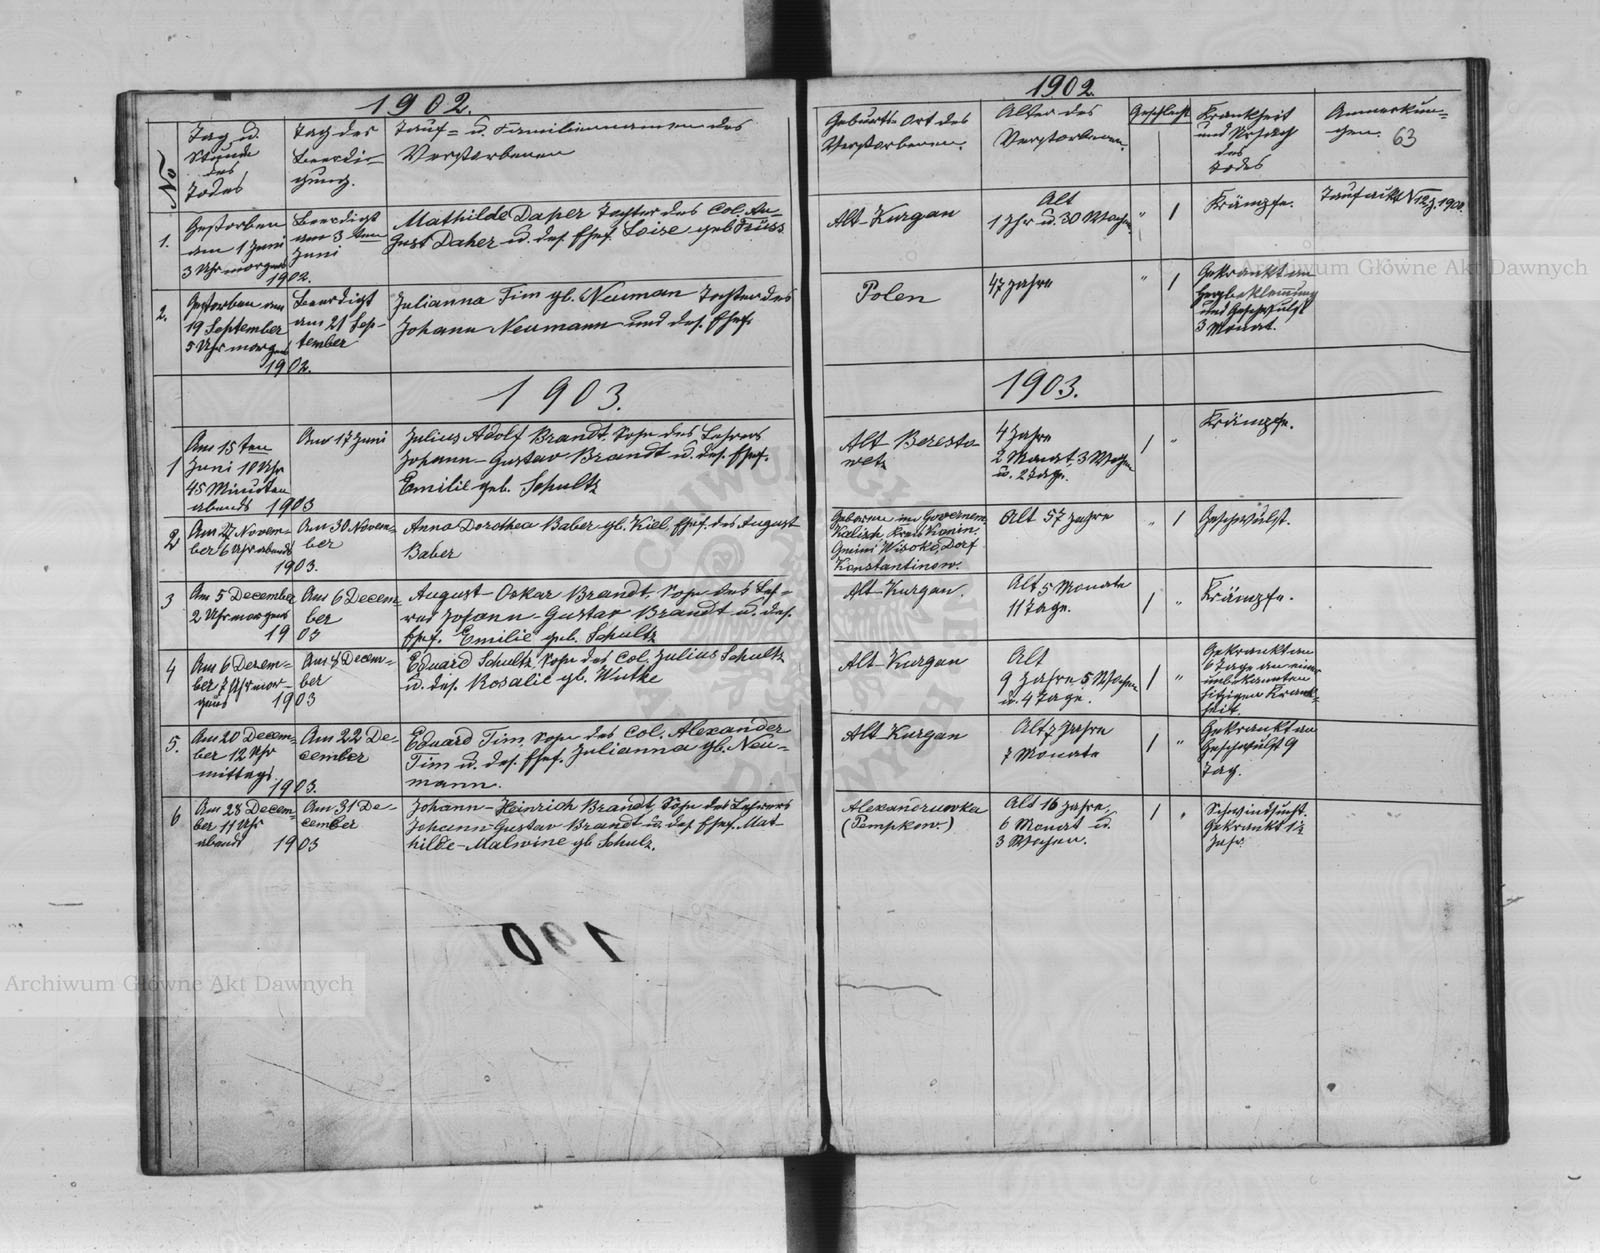 1902.
No
Tag u.
Stunde
des
Todes
Tag der
Beerdi-
gung.
Tauf- u. Familiennamen des
Verstorbenen
1.
Gestorben
am 1 Juni
3 Uhr morgens
1902.
Beerdigt
am 3ten
Juni
Mathilde Daher Tochter des Col. Au-
gust Daher u. des. Ehef. Loise geb
2.
Gestorben am
19 September
5 Uhr morgens
1902.
Beerdigt
am 21 Sep-
tember
Julianna Tim gb. Neuman Tochter des
Johann Neumann und des. Ehef.
1903.
1
Am 15ten
Juni 10 Uhr
45 Minuten
abends 1903
Am 17 Juni
Julius Adolf Brandt, Sohn des Lehrers
Johann-Gustav Brandt u. des. Ehef.
Emilie geb. Schultz
2
Am 27 Novem-
ber 6 Uhr abends
1903.
Am 30 Novem-
ber
Anna Dorothea Baber gb. Kiel, Ehef. des August
Baber
3
Am 5 December
2 Uhr morgens
1903
Am 6 Decem-
ber
August-Oskar Brandt, Sohn des Leh-
rers Johann-Gustav Brandt u. des.
Ehef. Emilie geb. Schultz
4
Am 6 Decem-
ber 7 Uhr mor-
gens
1903
Am 8 Decem-
ber
Eduard Schultz, Sohn des Col. Julius Schultz
u. des. Rosalie gb. Wutke
5.
Am 20 Decem-
ber 12 Uhr
mittags
1903.
Am 22 De-
cember
Eduard Tim, Sohn des Col. Alexander
Tim u. des. Ehef. Julianna gb. Neu-
mann.
6
Am 28 Decem-
ber 11 Uhr
abends 1903
Am 31 De-
cember
Johann-Heinrich Brandt, Sohn des Lehrers
Johann Gustav Brandt u. des. Ehef. Mat
hilde-Malwine gb Schulz.
1902.
Geburts-Ort des
Verstorbenen.
Alter des
Verstorbenen.
Geschlecht
Krankheit
und Ursach
des
Todes
Anmerkun-
gen. 63
Alt-Kurgan
Alt
1 Jhr u. 30 Wochen
" 1
Krämpfe.
Taufackt N 12 J. 1900.
Polen
47 Jahre
" 1
Gekrankt an
Herzbeklemung
und Geschwulst
3 Monat.
1903.
Alt Beresto
wetz
4 Jahre
2 Monat, 3 Wochen
u. 2 Tage.
1 "
Krämpfe.
Geboren im Governem.
Kalisch, Kreis Konin.
Gmini Wisoke, Dorf
Konstantinow.
Alt 57 Jahre
" 1
Geschwulst.
Alt-Kurgan.
Alt 5 Monate
11 Tage.
1 "
Krämpfe.
Alt-Kurgan
Alt
9 Jahre 5 Wochen
u. 4 Tage.
1 "
Gekrankt an
6 Tage an einer
unbekannten
hitzigen Krank-
heit.
Alt-Kurgan
Alt 7 Jahre
7 Monate
1 "
Gekrankt an
Geschwulst 9
Tag.
Alexandruwka
(Pempkow)
Alt 16 Jahre,
6 Monat u.
3 Wochen.
1 "
Schwindsucht.
Gekrankt 1½
Jahr.
Archiwum Główne Akt Dawnych
Archiwum Główne Akt Dawnych